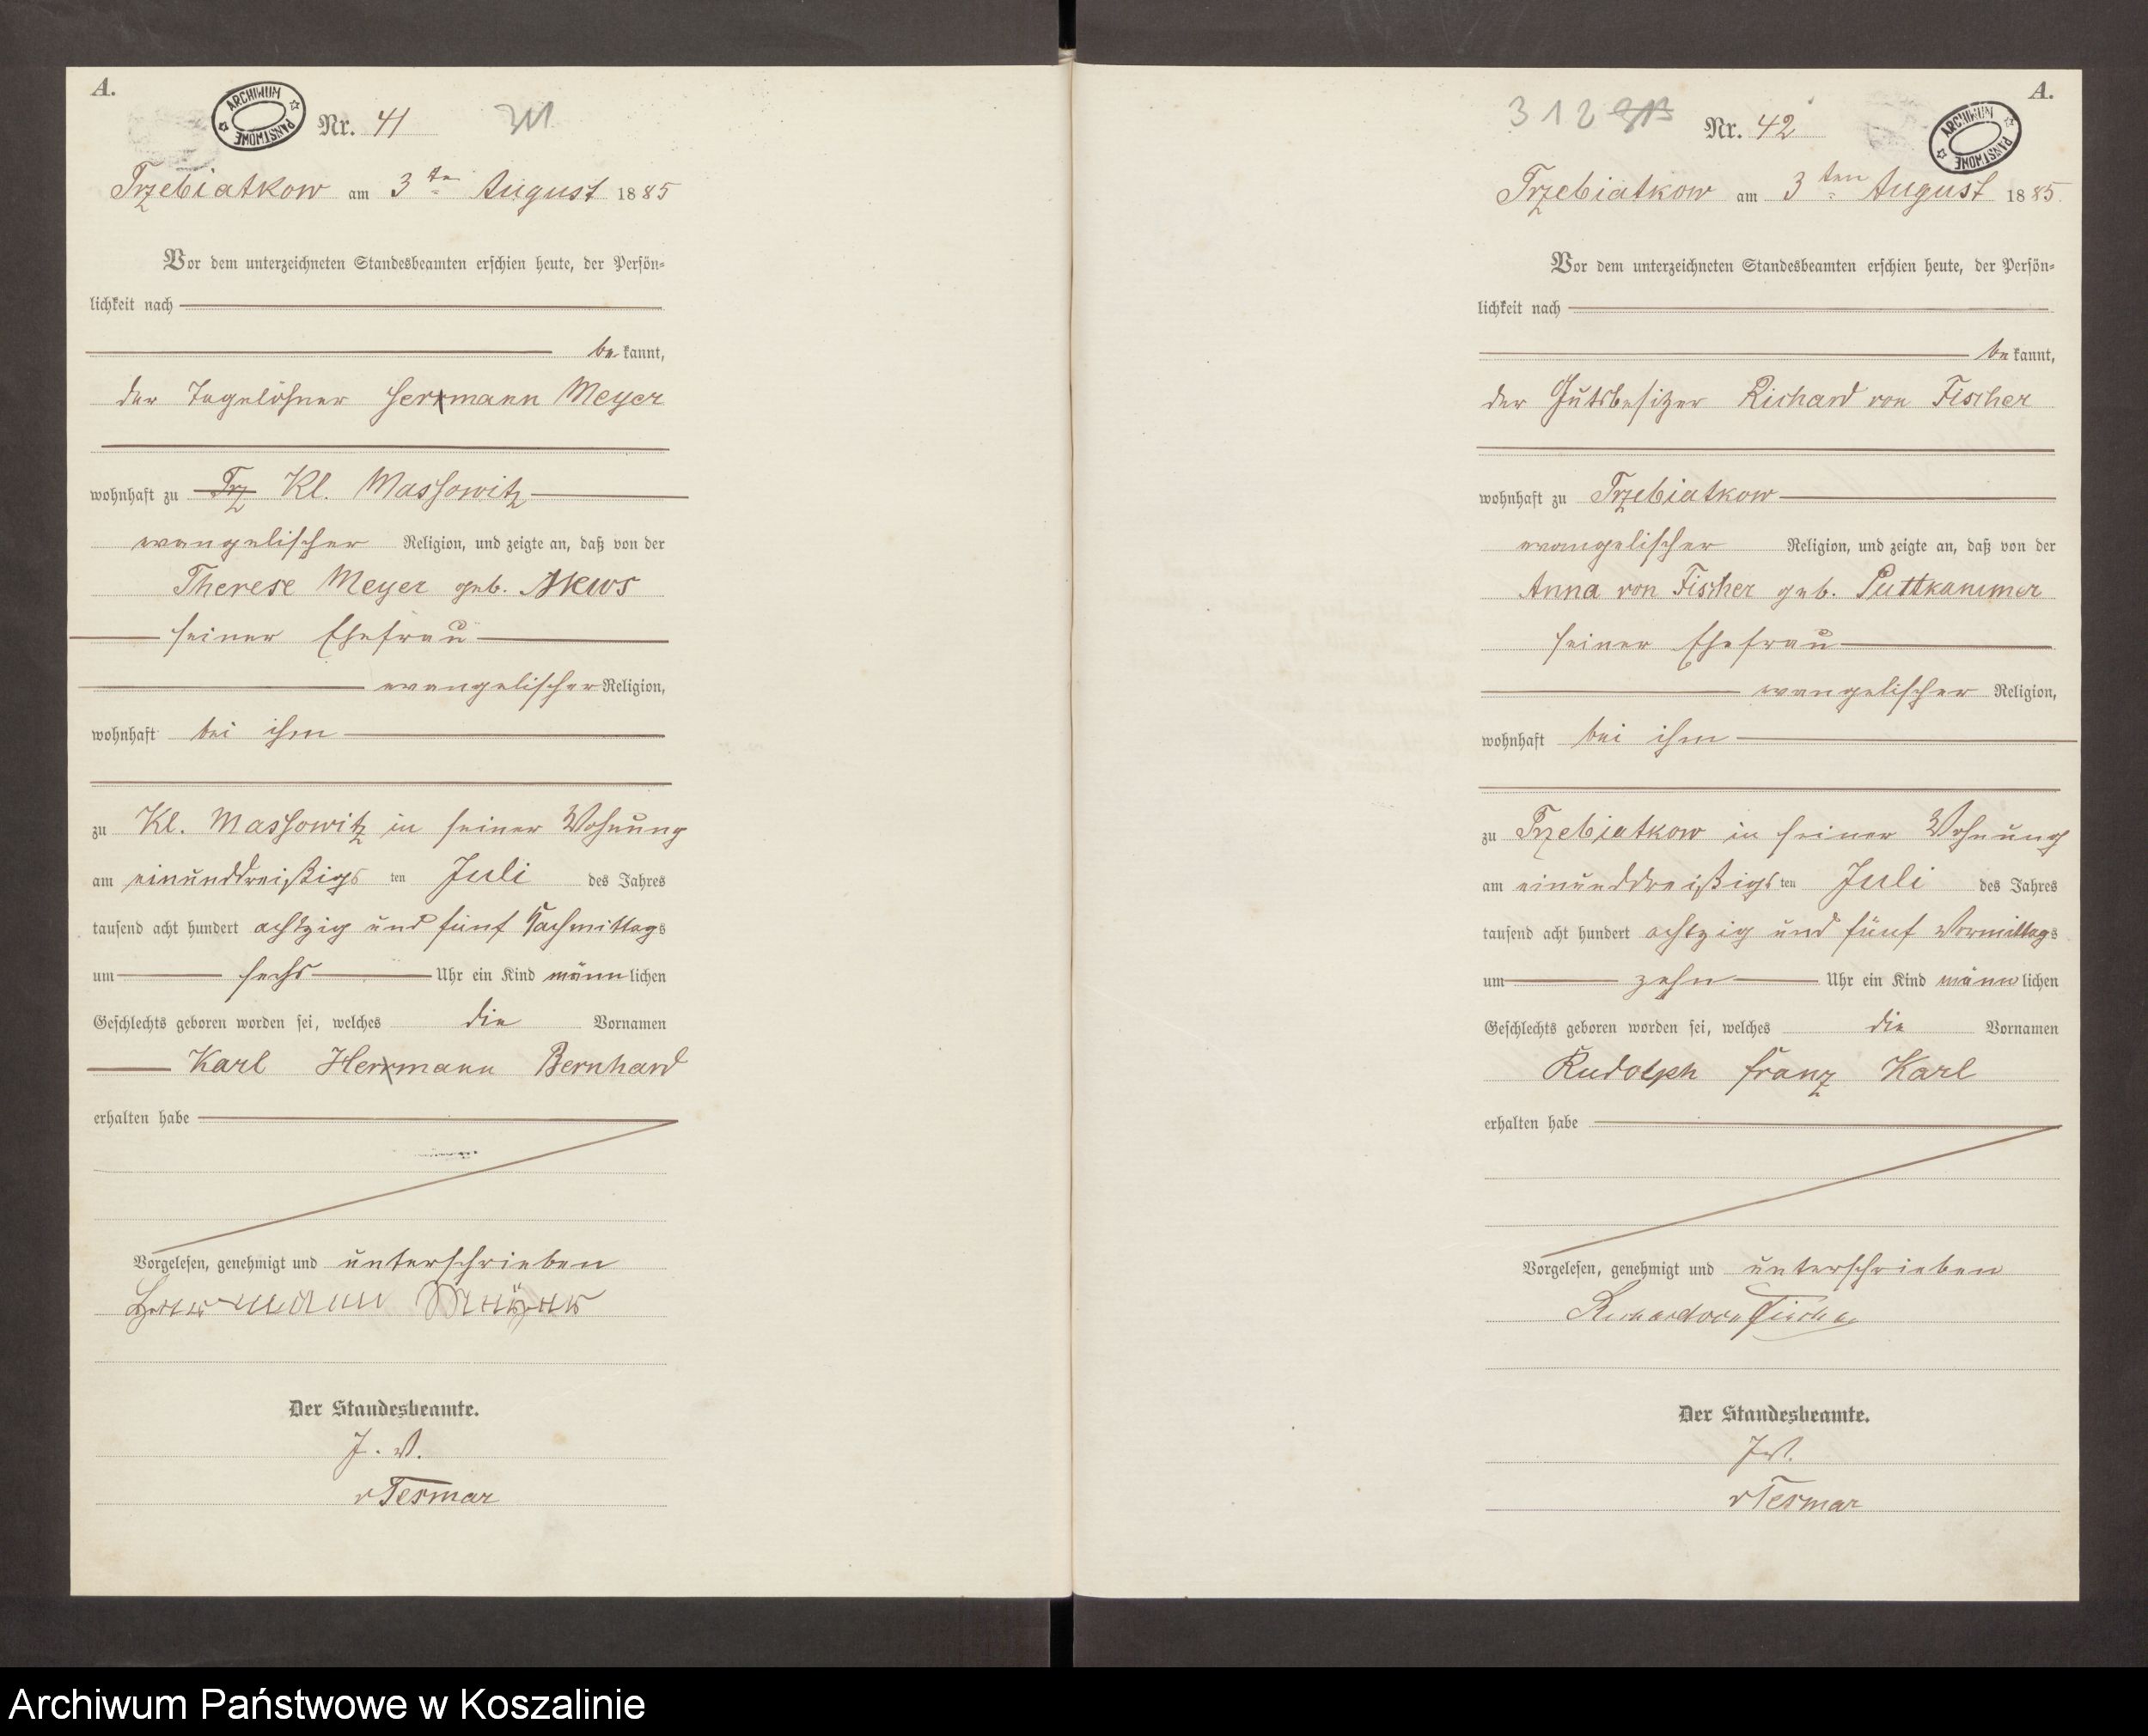 A.
ARCHIWUM PAŃSTWOWE
Nr. 41 311
Trzebiatkow am 3ten August 1885
Vor dem unterzeichneten Standesbeamten erschien heute, der Persön-
lichkeit nach
bekannt,
der Tagelöhner Herrmann Meyer
wohnhaft zu Trz Kl. Massowitz
evangelischer Religion, und zeigte an, daß von der
Therese Meyer geb.
seiner Ehefrau
evangelischer Religion,
wohnhaft bei ihm
zu Kl. Massowitz in seiner Wohnung
am einunddreißigsten Juli des Jahres
tausend acht hundert achtzig und fünf Nachmittags
um sechs Uhr ein Kind männlichen
Geschlechts geboren worden sei, welches die Vornamen
Karl Herrmann Bernhard
erhalten habe
Vorgelesen, genehmigt und unterschrieben
Der Standesbeamte.
J. V.
v Tesmar
A.
ARCHIWUM PAŃSTWOWE
312 313 Nr. 42
Trzebiatkow am 3ten August 1885.
Vor dem unterzeichneten Standesbeamten erschien heute, der Persön-
lichkeit nach
bekannt,
der Gutsbesitzer Richard von Fischer
wohnhaft zu Trzebiatkow
evangelischer Religion, und zeigte an, daß von der
Anna von Fischer geb. Puttkammer
seiner Ehefrau
evangelischer Religion,
wohnhaft bei ihm
zu Trzebiatkow in seiner Wohnung
am einunddreißigsten Juli des Jahres
tausend acht hundert achtzig und fünf Vormittags
um zehn Uhr ein Kind männlichen
Geschlechts geboren worden sei, welches die Vornamen
Rudolph Franz Karl
erhalten habe
Vorgelesen, genehmigt und unterschrieben
Richard von Fischer
Der Standesbeamte.
J. V.
v Tesmar
Archiwum Państwowe w Koszalinie